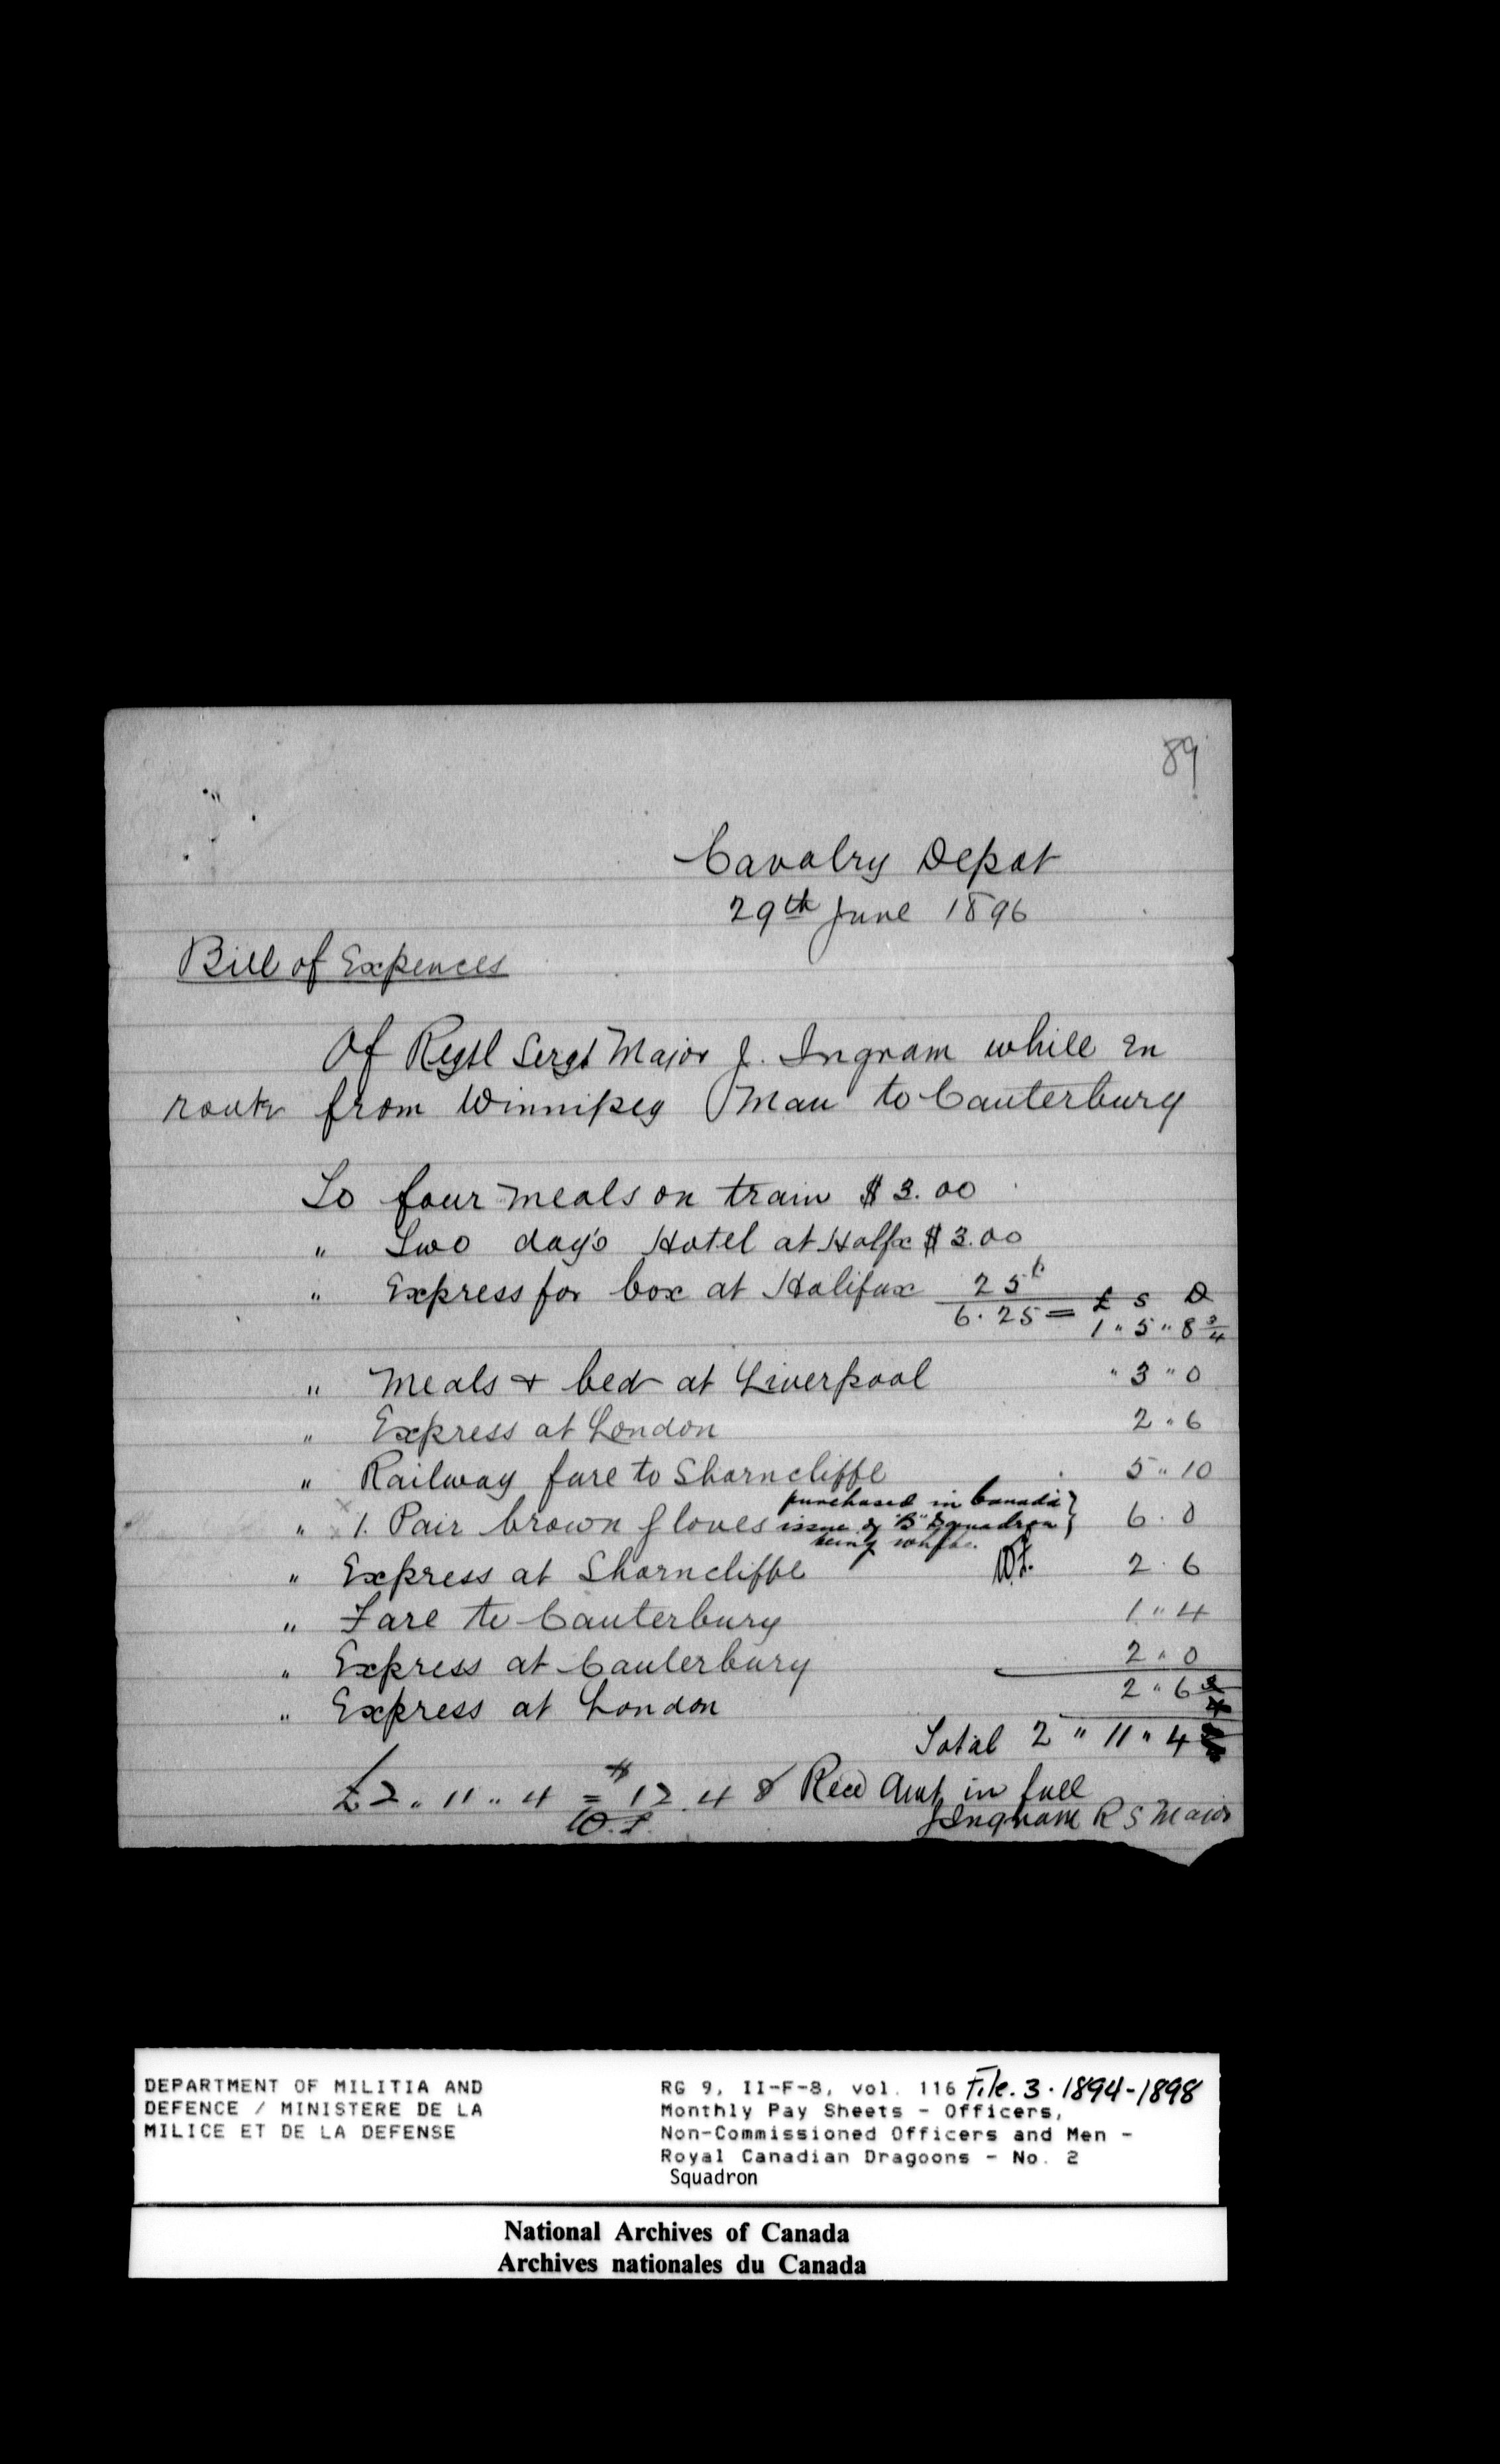 89
Cavalry Depot
29th June 1896
Bill of Expences
Of Regtl Sergt Major J. Ingram while en
route from Winnipeg Man to Canterbury
To four meals on train $3.00
" Two day's Hotel at Halfx $3.00
" Express for box at Halifax 25c
6.25 = £ S D
1 " 5 " 8 3/4
" Meals & bed at Liverpool " 3 " 0
" Express at London 2 " 6
" Railway fare to Shorncliffe 5 " 10
" 1. Pair brown gloves purchased in Canada } 6 . 0
issue of "B" Squadron
being
" Express at Shorncliffe 2 . 6
" Fare to Canterbury 1 " 4
" Express at Canterbury 2 " 0
" Express at London 2 " 6
Total 2 " 11 " 4
£2 " 11 " 4 = $12.48 Recd Amt in full
JIngram R S Major
DEPARTMENT OF MILITIA AND
DEFENCE / MINISTERE DE LA
MILICE ET DE LA DEFENSE
RG 9, II-F-8, vol. 116 File. 3. 1894-1898
Monthly Pay Sheets - Officers,
Non-Commissioned Officers and Men -
Royal Canadian Dragoons - No. 2
Squadron
National Archives of Canada
Archives nationales du Canada